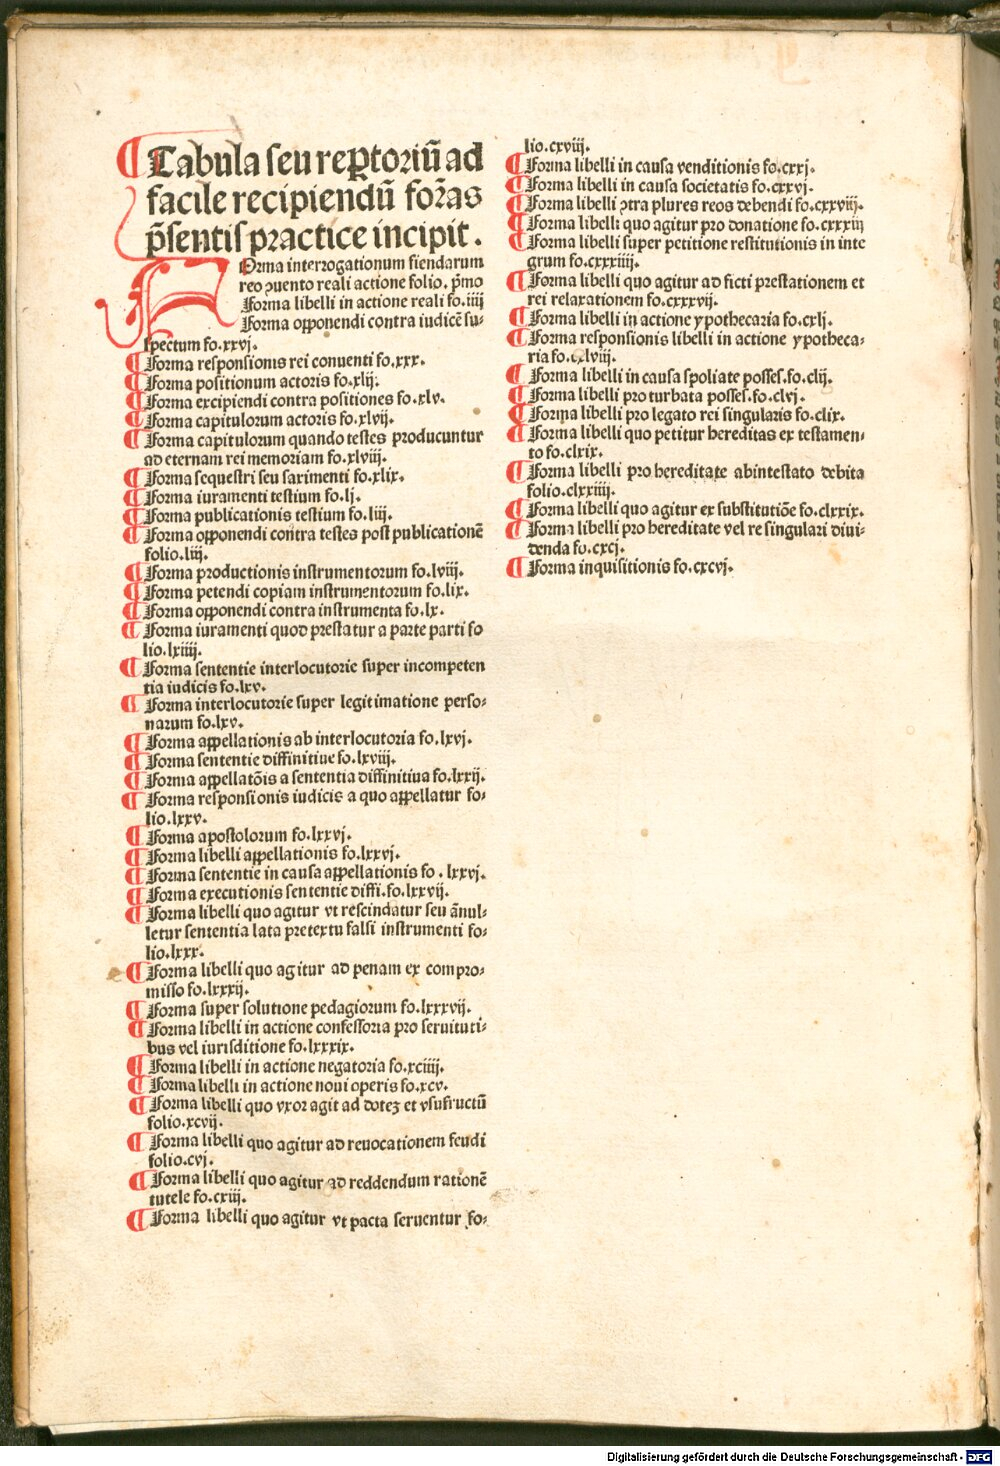 ¶ Tabula seu reꝑtoriū ad
facile recipiendū forᷓas
p̄sentis practice incipit.
Forma interrogationum fiendarum
reo ꝯuento reali actione folio. pͥmo
Forma libelli in actione reali fo.iiij
Forma opponendi contra iudicē su⸗
spectum fo.xxvj.
¶ Forma responsionis rei conuenti fo.xxx.
¶ Forma positionum actoris fo.xlij.
¶ Forma excipiendi contra positiones fo.xlv.
¶ Forma capitulorum actoris fo.xlvij.
¶ Forma capitulorum quando testes producuntur
ad eternam rei memoriam fo.xlviij.
¶ Forma sequestri seu saximenti fo.xlix.
¶ Forma iuramenti testium fo.lj.
¶ Forma publicationis testium fo.liij.
¶ Forma opponendi contra testes post publicationē
folio.liij.
¶ Forma productionis instrumentorum fo.lviij.
¶ Forma petendi copiam instrumentorum fo.lix.
¶ Forma opponendi contra instrumenta fo.lx.
¶ Forma iuramenti quod prestatur a parte parti fo
lio.lxiiij.
¶ Forma sententie interlocutorie super incompeten
tia iudicis fo.lxv.
¶ Forma interlocutorie super legitimatione perso⸗
narum fo.lxv.
¶ Forma appellationis ab interlocutoria fo.lxvj.
¶ Forma sententie diffinitiue fo.lxviij.
¶ Forma appellatōis a sententia diffinitiua fo.lxxij.
¶ Forma responsionis iudicis a quo appellatur fo⸗
lio.lxxv.
¶ Forma apostolorum fo.lxxvj.
¶ Forma libelli appellationis fo.lxxvj.
¶ Forma sententie in causa appellationis fo.lxxvj.
¶ Forma executionis sententie diffi.fo.lxxvij.
¶ Forma libelli quo agitur vt rescindatur seu ānul⸗
letur sententia lata pretextu falsi instrumenti fo⸗
lio.lxxx.
¶ Forma libelli quo agitur ad penam ex compro⸗
misso fo.lxxxij.
¶ Forma super solutione pedagiorum fo.lxxxvij.
¶ Forma libelli in actione confessoria pro seruituti⸗
bus vel iurisditione fo.lxxxix.
¶ Forma libelli in actione negatoria fo.xciiij.
¶ Forma libelli in actione noui operis fo.xcv.
¶ Forma libelli quo vxor agit ad doteꝫ et vsufructū
folio.xcvij.
¶ Forma libelli quo agitur ad reuocationem feudi
folio.cvj.
¶ Forma libelli quo agitur ad reddendum rationē
tutele fo.cxiij.
¶ Forma libelli quo agitur vt pacta seruentur fo⸗
lio.cxviij.
¶ Forma libelli in causa venditionis fo.cxxj.
¶ Forma libelli in causa societatis fo.cxxvj.
¶ Forma libelli ꝯtra plures reos debendi fo.cxxviij.
¶ Forma libelli quo agitur pro donatione fo.cxxxiij
¶ Forma libelli super petitione restitutionis in inte
grum fo.cxxxiiij.
¶ Forma libelli quo agitur ad ficti prestationem et
rei relaxationem fo.cxxxvij.
¶ Forma libelli in actione ypothecaria fo.cxlj.
¶ Forma responsionis libelli in actione ypotheca⸗
ria fo.cxlviij.
¶ Forma libelli in causa spoliate posses.fo.clij.
¶ Forma libelli pro turbata posses.fo.clvj.
¶ Forma libelli pro legato rei singularis fo.clix.
¶ Forma libelli quo petitur hereditas ex testamen⸗
to fo.clxix.
¶ Forma libelli pro hereditate abintestato debita
folio.clxxiiij.
¶ Forma libelli quo agitur ex substitutiōe fo.clxxix.
¶ Forma libelli pro hereditate vel re singulari diui⸗
denda fo.cxcj.
¶ Forma inquisitionis fo.cxcvj.
Digitalisierung gefördert durch die Deutsche Forschungsgemeinschaft - DFG